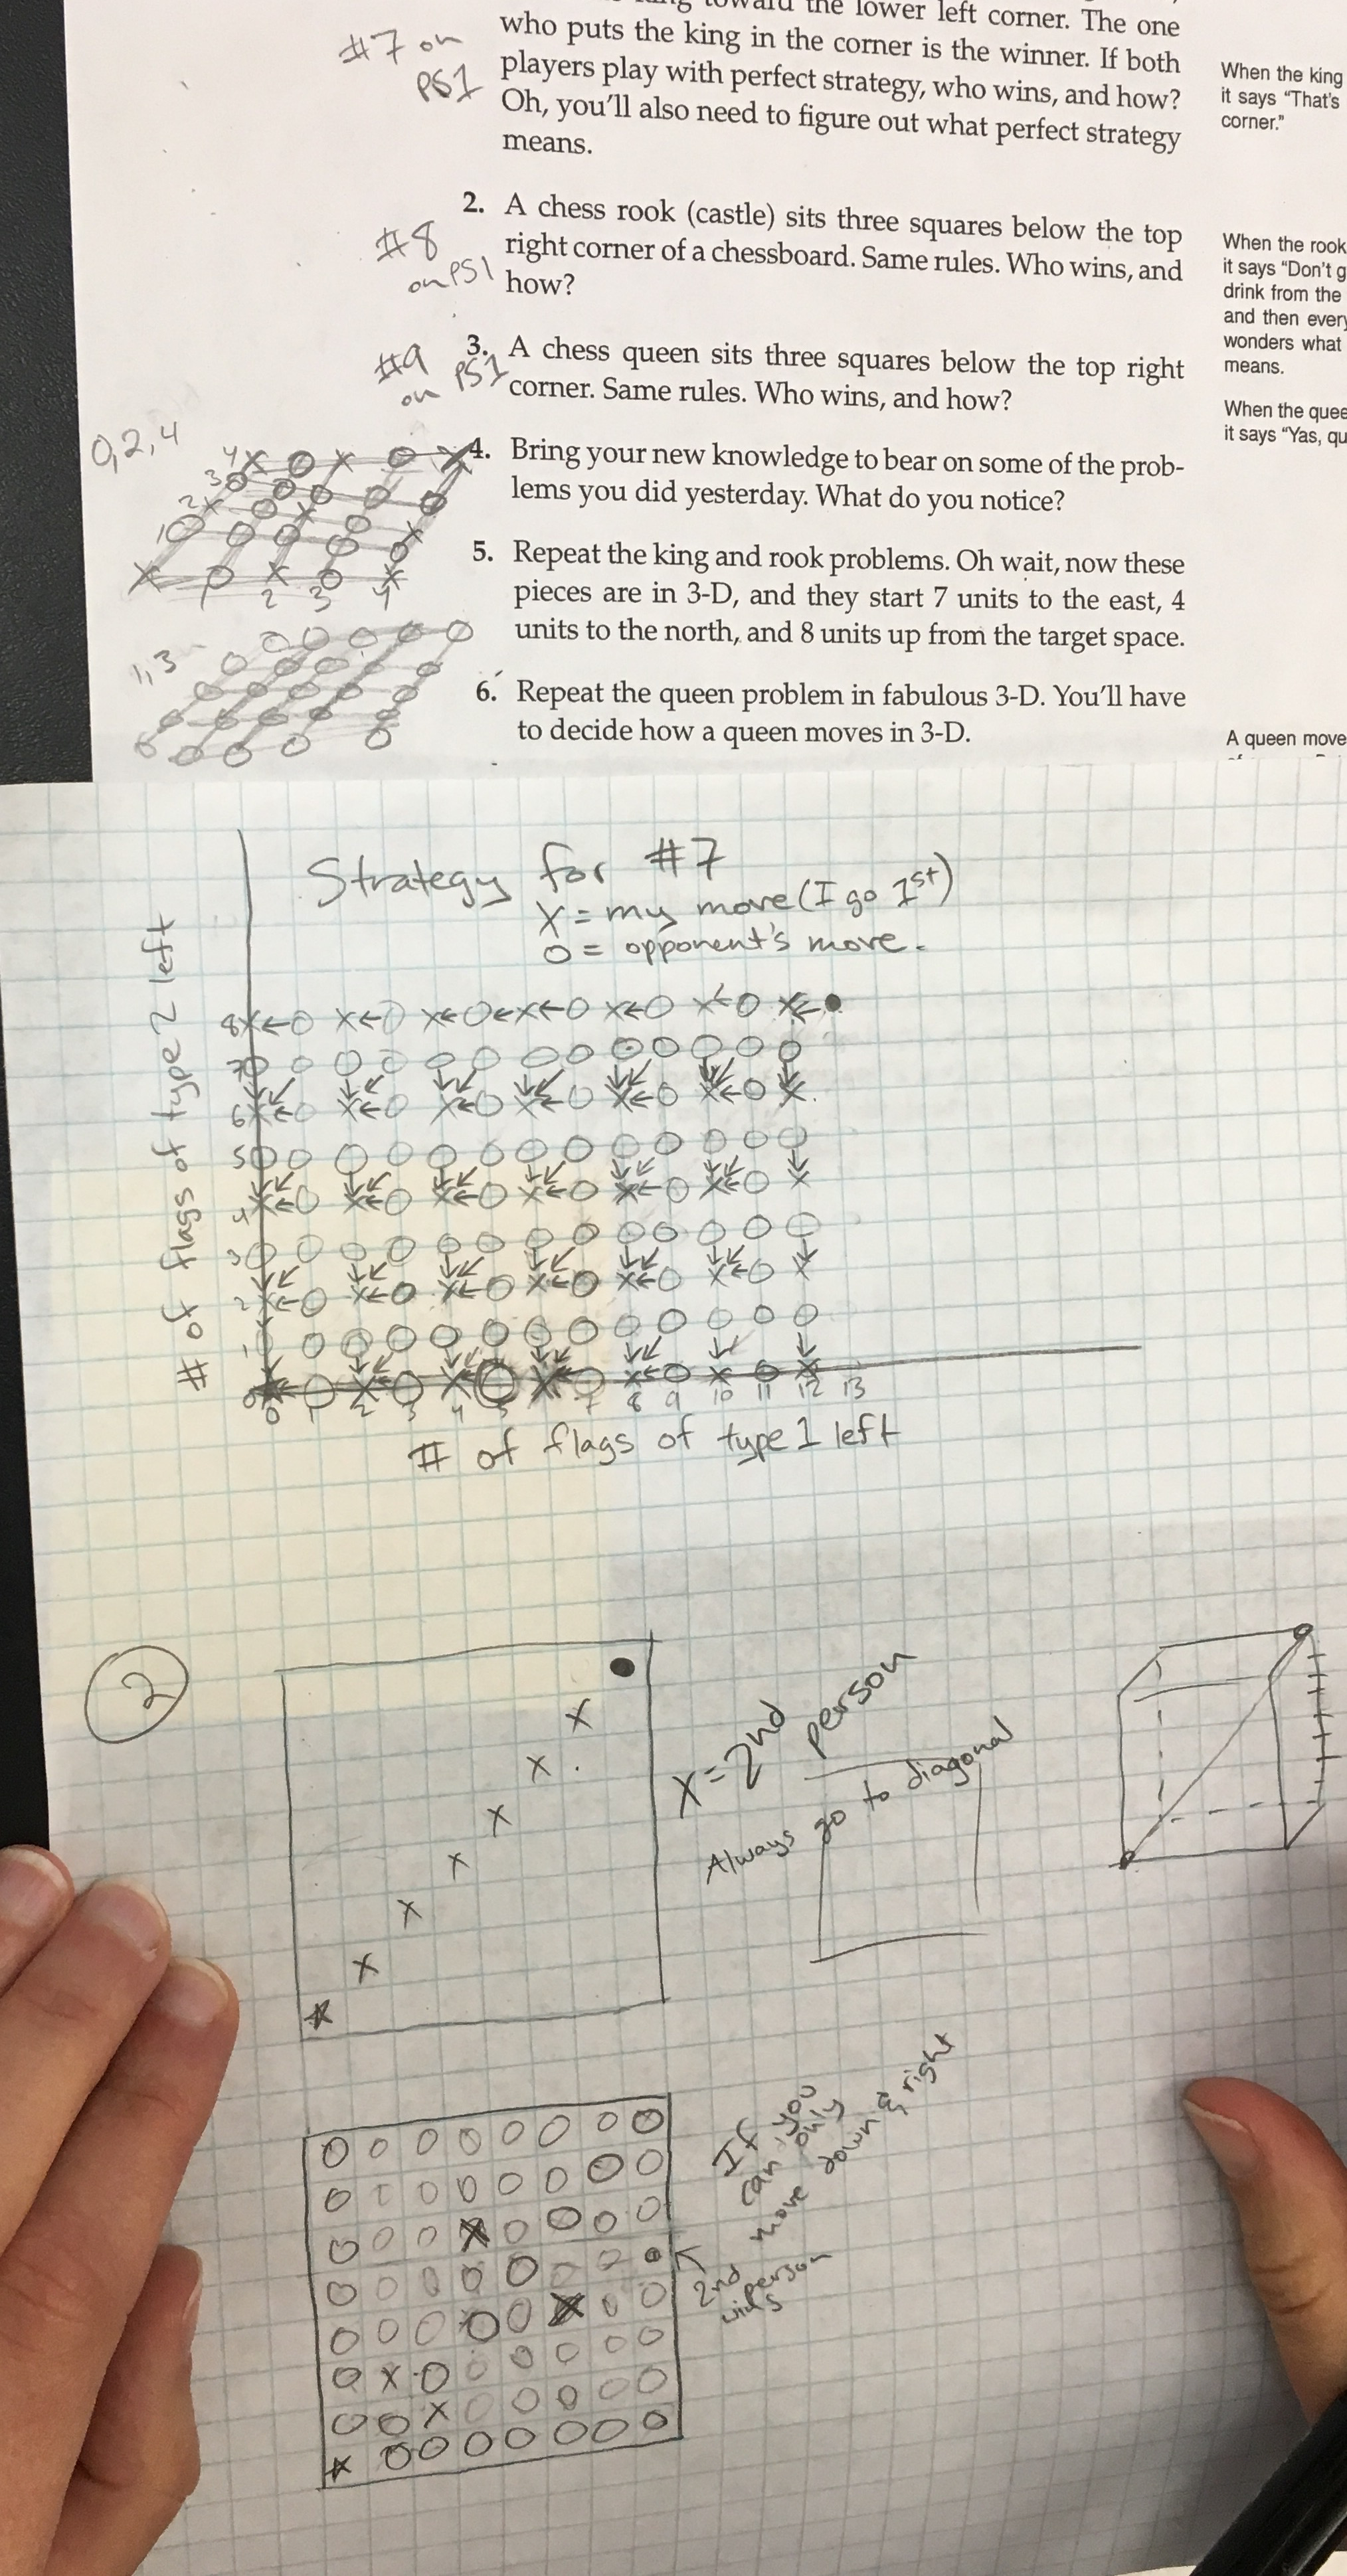 toward the lower left corner. The one
who puts the king in the corner is the winner. If both
players play with perfect strategy, who wins, and how?
Oh, you'll also need to figure out what perfect strategy
means.
#7 on
PS1
When the king
it says "That's
corner."
2. A chess rook (castle) sits three squares below the top
right corner of a chessboard. Same rules. Who wins, and
how?
#8
on PS1
When the rook
it says "Don't g
drink from the
and then every
wonders what
means.
3. A chess queen sits three squares below the top right
corner. Same rules. Who wins, and how?
#9
on PS1
When the quee
it says "Yas, qu
4. Bring your new knowledge to bear on some of the prob-
lems you did yesterday. What do you notice?
0,2,4
4
3
2
1
1 2 3 4
5. Repeat the king and rook problems. Oh wait, now these
pieces are in 3-D, and they start 7 units to the east, 4
units to the north, and 8 units up from the target space.
1,3
6. Repeat the queen problem in fabulous 3-D. You'll have
to decide how a queen moves in 3-D.
A queen move
Strategy for #7
X = my move (I go 1st)
O = opponent's move.
# of flags of type 2 left
8
7
6
5
4
3
2
1
0
0 1 2 3 4 5 7 8 9 10 11 12 13
# of flags of type 1 left
2
X = 2nd
person
Always go to diagonal
If you
can only
move down & right
2nd
person
wins